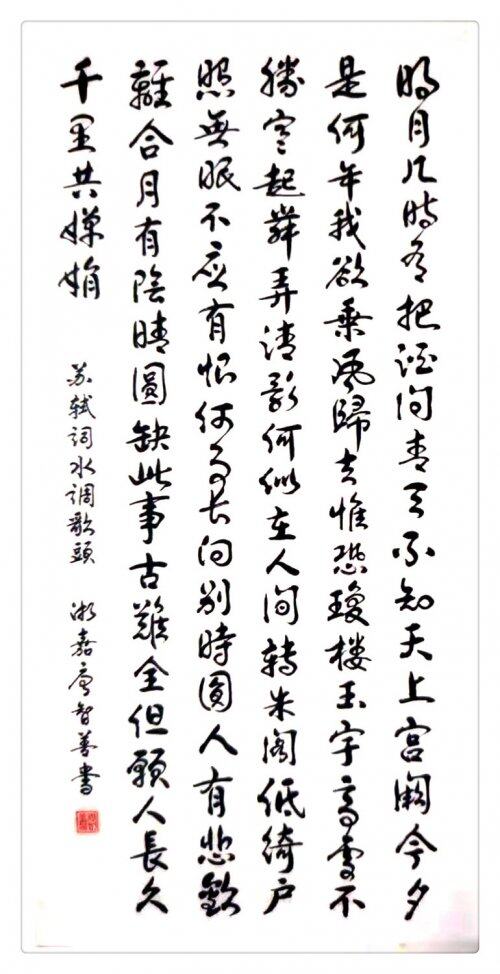 明月几時有把酒问青天不知天上宫阙今夕
是何年我欲乘風歸去惟恐瓊楼玉宇高處不
勝寒起舞弄清影何似在人间轉朱阁低綺户
照無眠不应有恨何事长向别時圆人有悲歡
離合月有陰晴圓缺此事古難全但願人長久
千里共嬋娟
苏轼词水调歌頭
嘉唐智善書